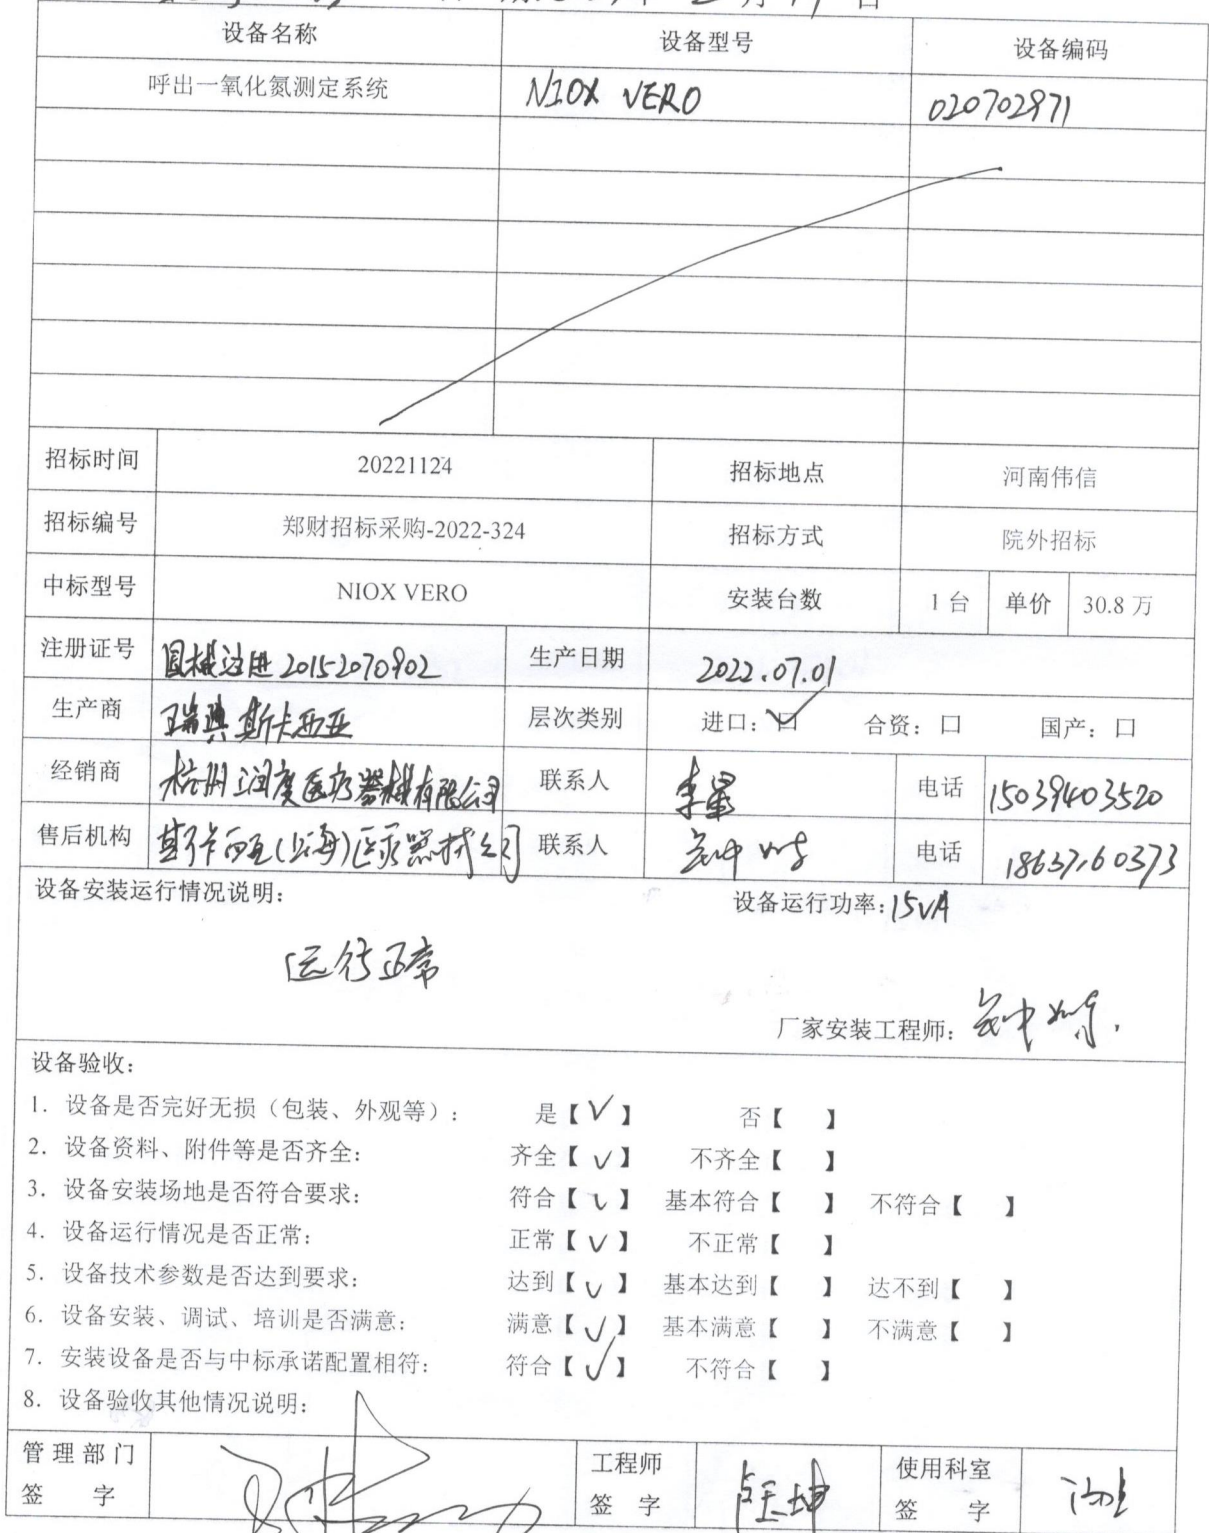 月 19 日
设备名称 设备型号 设备编码
呼出一氧化氮测定系统 NIOX VERO 020702971
招标时间 20221124 招标地点 河南伟信
招标编号 郑财招标采购-2022-324 招标方式 院外招标
中标型号 NIOX VERO 安装台数 1 台 单价 30.8 万
注册证号 国械注进 20152070902 生产日期 2022.07.01
生产商 瑞典斯卡西亚 层次类别 进口：☑ 合资：口 国产：口
经销商 杭州润度医疗器械有限公司 联系人 李 电话 15039403520
售后机构 斯卡西亚(上海)医疗器械公司 联系人 电话 18637160373
设备安装运行情况说明： 设备运行功率：15VA
运行正常
厂家安装工程师：
设备验收：
1. 设备是否完好无损（包装、外观等）： 是【√】 否【 】
2. 设备资料、附件等是否齐全： 齐全【√】 不齐全【 】
3. 设备安装场地是否符合要求： 符合【√】 基本符合【 】 不符合【 】
4. 设备运行情况是否正常： 正常【√】 不正常【 】
5. 设备技术参数是否达到要求： 达到【√】 基本达到【 】 达不到【 】
6. 设备安装、调试、培训是否满意： 满意【√】 基本满意【 】 不满意【 】
7. 安装设备是否与中标承诺配置相符： 符合【√】 不符合【 】
8. 设备验收其他情况说明：
管理部门 工程师 使用科室
签 字 签 字 签 字